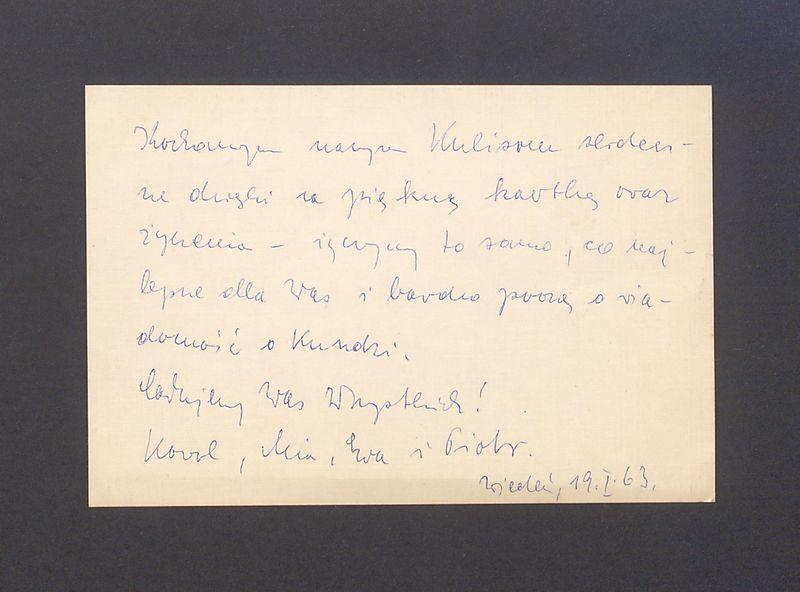 Kochanym naszym Kulisom serdecz-
ne dzięki za piękną kartkę oraz
życzenia – życzymy to samo, co naj-
lepsze dla Was i bardzo proszę o wia-
domość o Kundzi.
Całujemy Was Wszystkich!
Karol, Mia, Ewa i Piotr.
Wiedeń, 19.I.63.